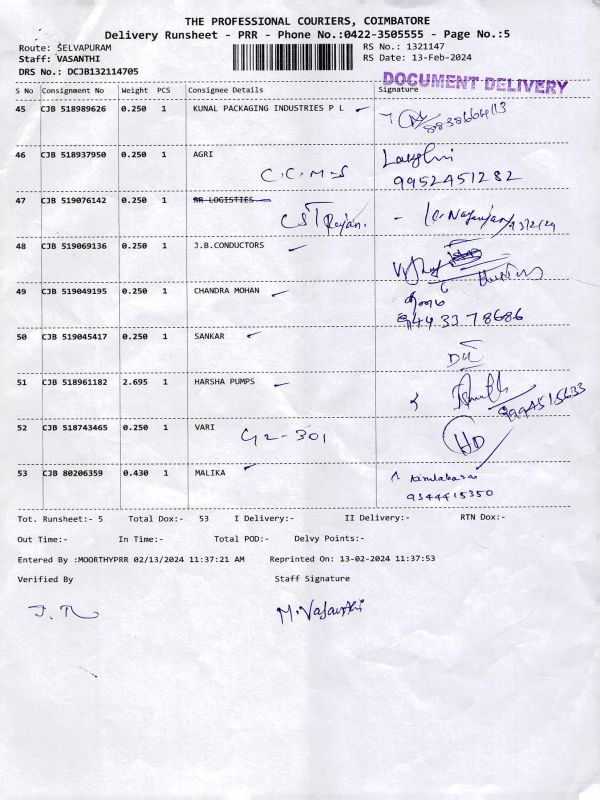 THE PROFESSIONAL COURIERS, COIMBATORE
Delivery Runsheet - PRR - Phone No.:0422-3505555 - Page No.:5
Route: SELVAPURAM
RS No.: 1321147
Staff: VASANTHI
RS Date: 13-Feb-2024
DRS No.: DCJB132114705
DOCUMENT DELIVERY
S No Consignment No Weight PCS Consignee Details Signature
45 CJB 518989626 0.250 1 KUNAL PACKAGING INDUSTRIES P L
46 CJB 518937950 0.250 1 AGRI
C.C.M-S
9952451282
47 CJB 519076142 0.250 1 RR LOGISTIES
CST Rajan.
48 CJB 519069136 0.250 1 J.B.CONDUCTORS
49 CJB 519049195 0.250 1 CHANDRA MOHAN
9443378686
50 CJB 519045417 0.250 1 SANKAR
51 CJB 518961182 2.695 1 HARSHA PUMPS
9994515633
52 CJB 518743465 0.250 1 VARI
G2-301
HD
53 CJB 80206359 0.430 1 MALIKA
9344415350
Tot. Runsheet:- 5 Total Dox:- 53 I Delivery:- II Delivery:- RTN Dox:-
Out Time:- In Time:- Total POD:- Delvy Points:-
Entered By :MOORTHYPRR 02/13/2024 11:37:21 AM Reprinted On: 13-02-2024 11:37:53
Verified By Staff Signature
M.Vasanthi